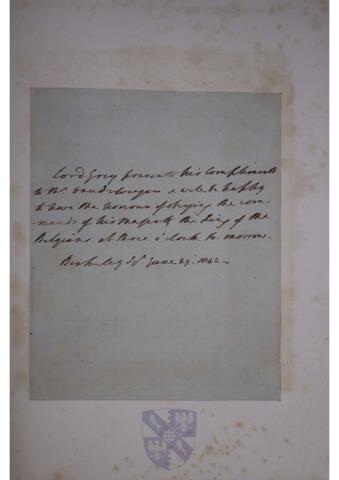 Lord Grey presents his Compliments
to Mr. & will be happy
to have the honour of obeying the com-
mands of his Majesty the King of the
Belgians at three o'clock to morrow.
Berkeley Sq. June 29. 1842 -